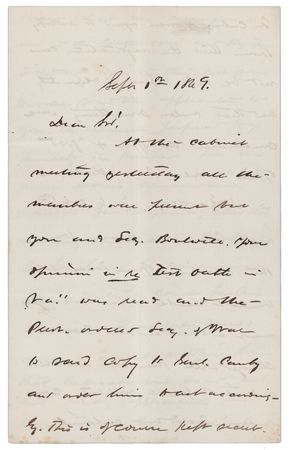 Sept 1st 1869.
Dear Sir,
At the cabinet
meeting yesterday all the
members were present but
you and Secy. Boutwell. Your
opinion in re Test Oath in
"Va" was read and the
Prest. ordered Secy. of War
to send copy to Genl. Canby
and order him to act according-
ly. This is of course kept secret.